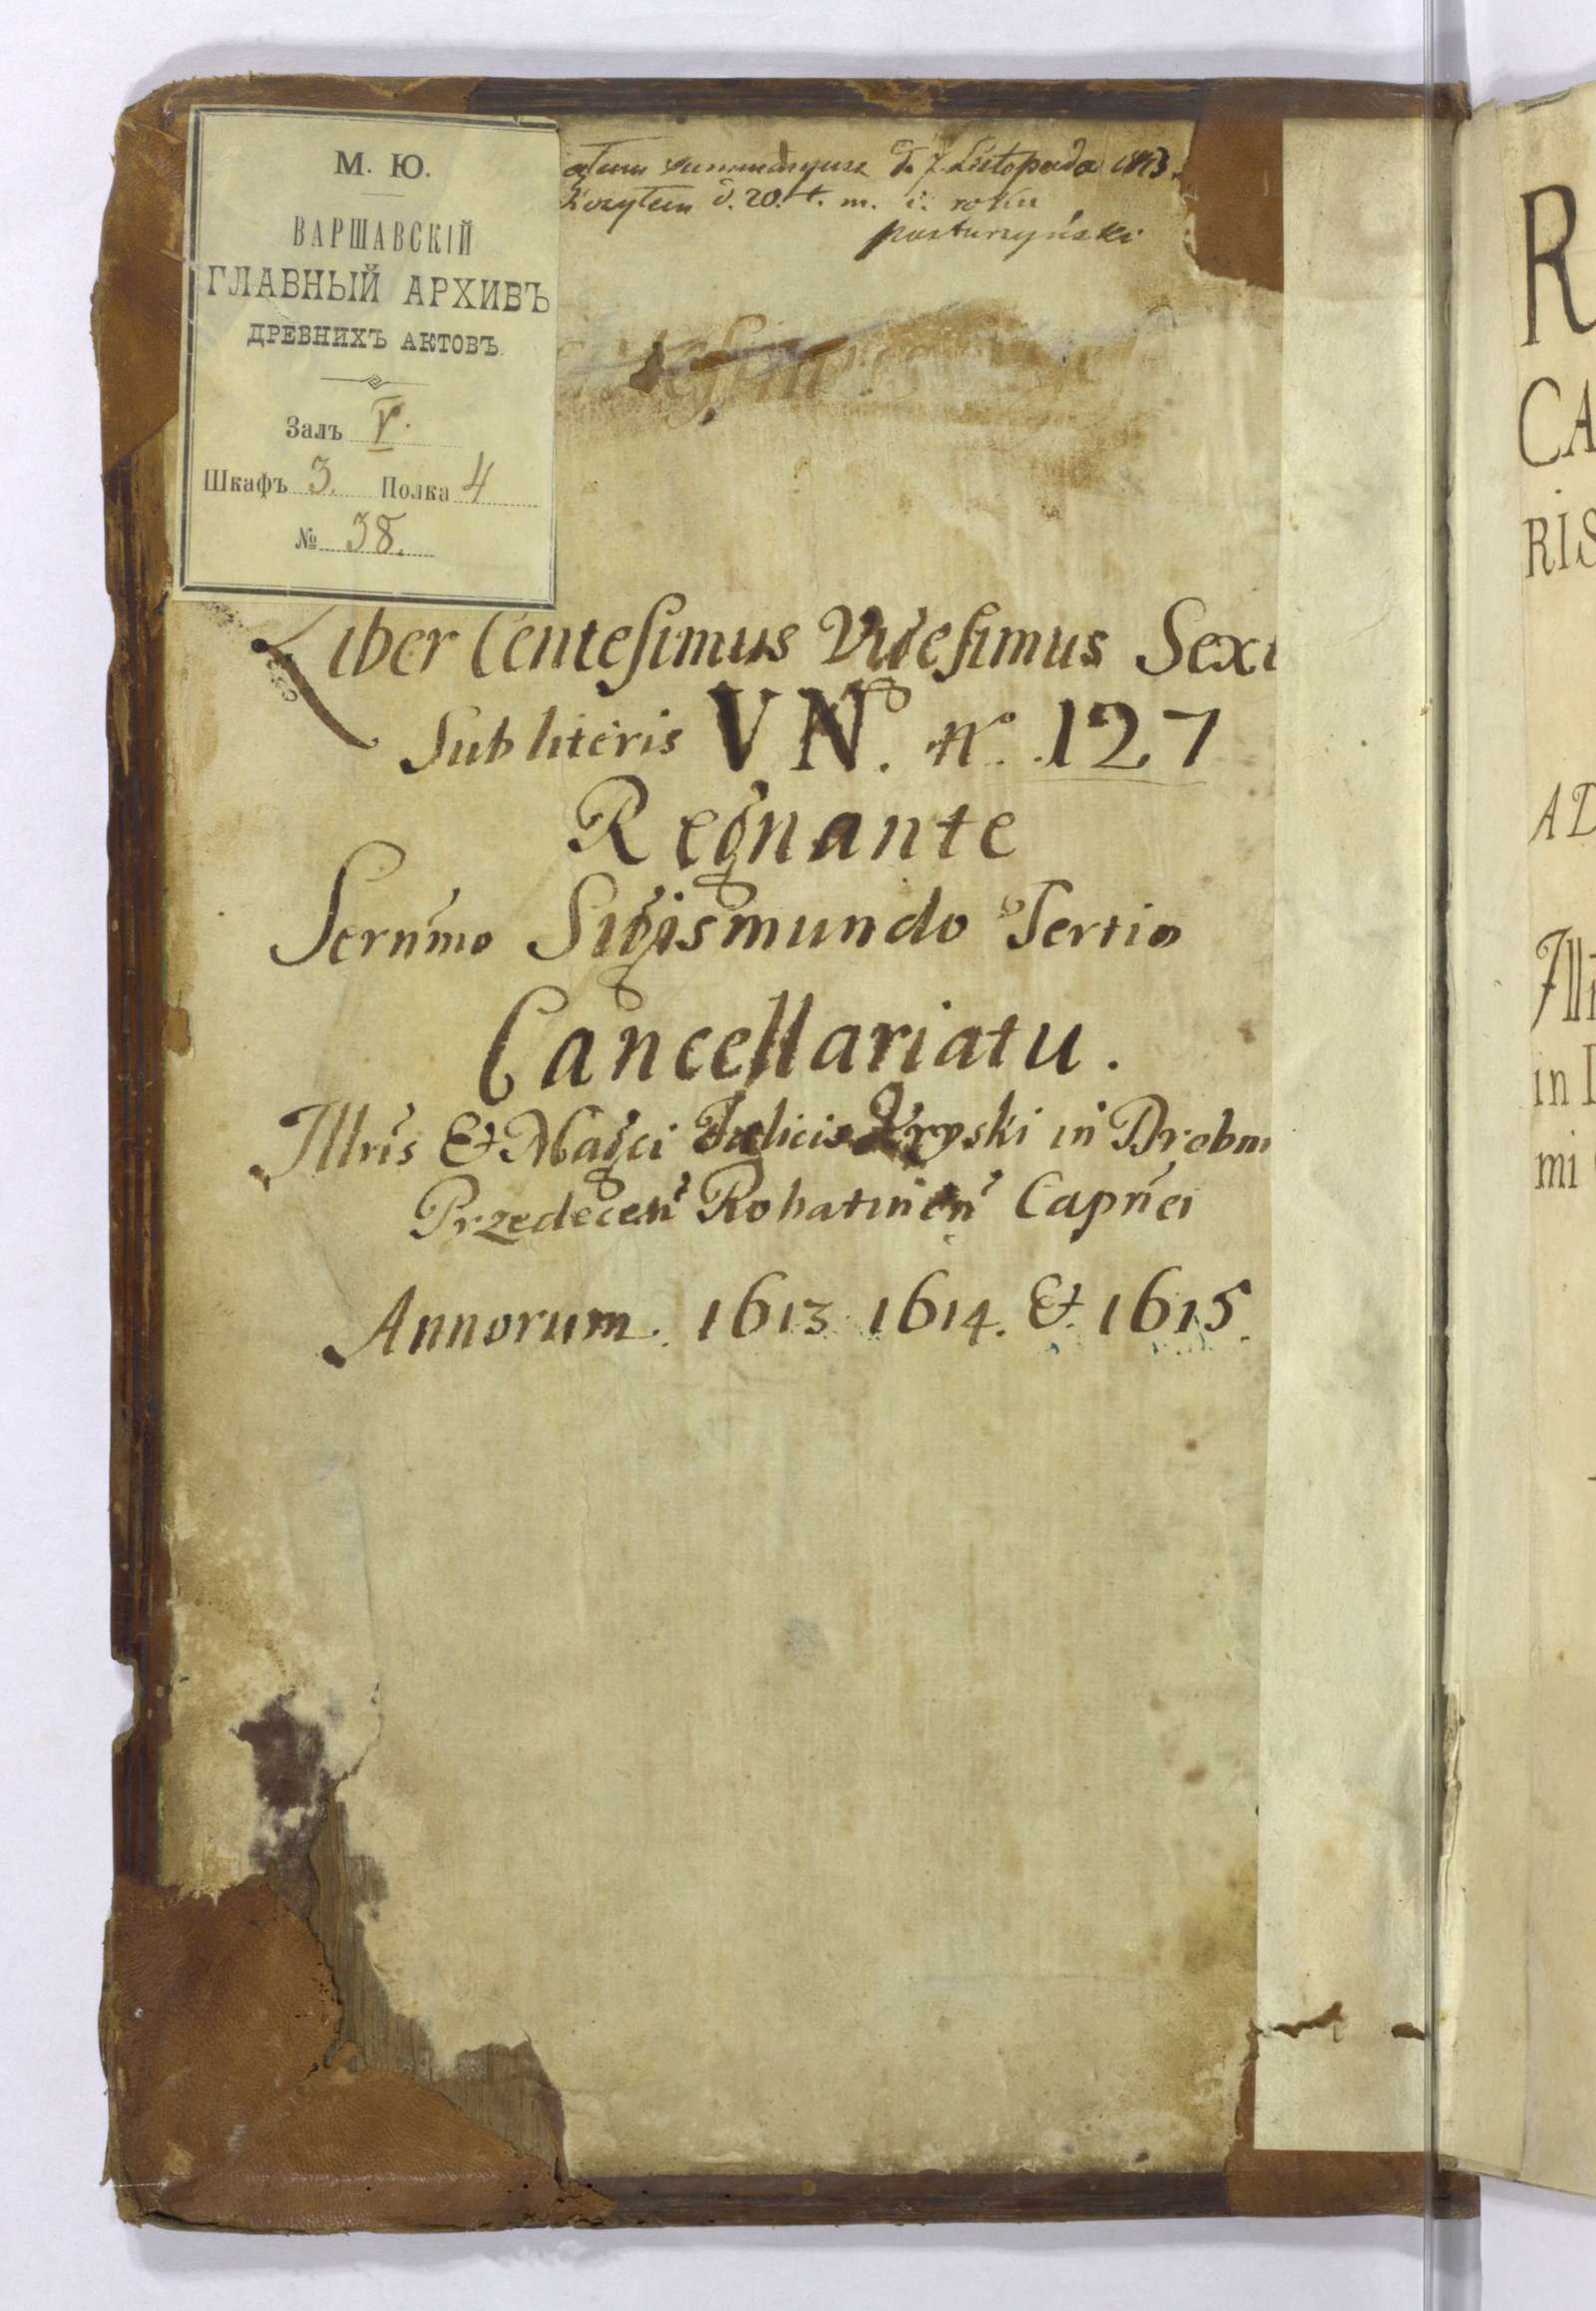 М. Ю.
ВАРШАВСКІЙ
ГЛАВНЫЙ АРХИВЪ
ДРЕВНИХЪ АКТОВЪ.
Залъ V.
Шкафъ 3. Полка 4
№ 38.
d. 7 Listopada
d. 20. t. m. i. roku
Liber Centesimus Vigesimus Sext
Sub literis VN. No. 127
Regnante
Sernmo Sigismundo Tertio
Cancellariatu.
Illris & Magci Felicis Kryski in Drobnin
Przedecen Rohatinen Capnei
Annorum. 1613 1614. & 1615.
R
CA
RIS
AD
Ill
in D
mi